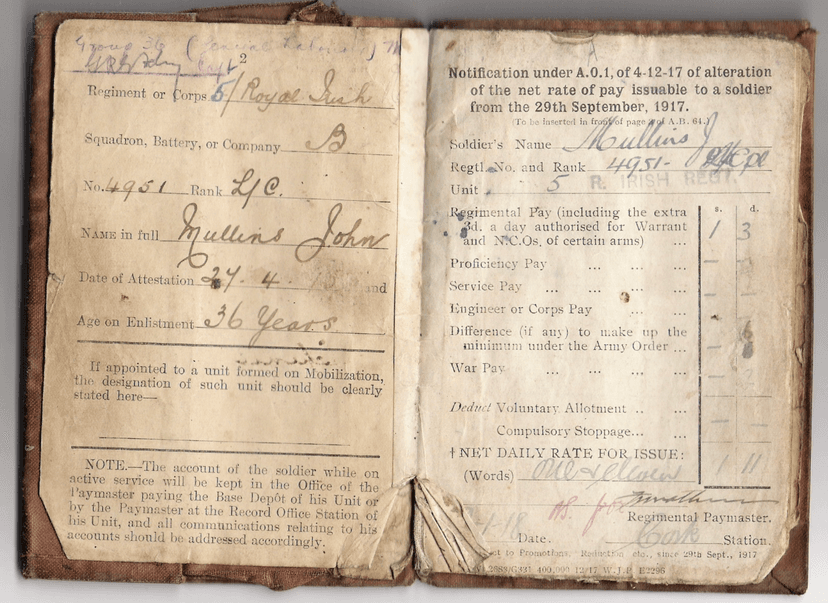 Group 36 (
2
Regiment or Corps 5/ Royal Irish
Squadron, Battery, or Company B
No. 4951 Rank L/C.
NAME in full Mullins John
Date of Attestation 27. 4. and
Age on Enlistment 36 Years
If appointed to a unit formed on Mobilization,
the designation of such unit should be clearly
stated here—
NOTE.—The account of the soldier while on
active service will be kept in the Office of the
Paymaster paying the Base Depôt of his Unit or
by the Paymaster at the Record Office Station of
his Unit, and all communications relating to his
accounts should be addressed accordingly.
Notification under A.O.1, of 4-12-17 of alteration
of the net rate of pay issuable to a soldier
from the 29th September, 1917.
(To be inserted in front of page of A.B. 64.)
Soldier's Name Mullins J
Regtl. No. and Rank 4951- Cpl
Unit 5 R. IRISH REGT.
s. d.
Regimental Pay (including the extra
3d. a day authorised for Warrant
and N.C.Os. of certain arms) ... 1 3
Proficiency Pay ... ... ... –
Service Pay ... ... ... ... –
Engineer or Corps Pay ... ... –
Difference (if any) to make up the
minimum under the Army Order ... –
War Pay ... ... ... ... –
Deduct Voluntary Allotment ... ... – –
Compulsory Stoppage... ... – –
† NET DAILY RATE FOR ISSUE: 1 11
(Words) One & eleven
Regimental Paymaster.
1-18 Date. Cork Station.
to Promotions, Reduction etc., since 29th Sept., 1917
400,000 12/17 W.J.P. E2296